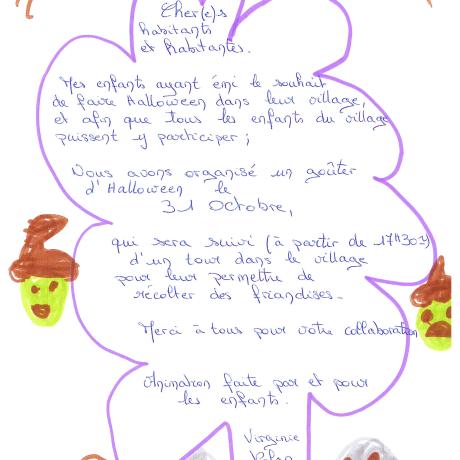 Cher(e)s
habitants
et habitantes.
Mes enfants ayant émi le souhait
de faire Halloween dans leur village,
et afin que tous les enfants du village
puissent y participer ;
Nous avons organisé un goûter
d'Halloween le
31 Octobre,
qui sera suivi (à partir de 17H30)
d'un tour dans le village
pour leur permettre de
récolter des friandises.
Merci à tous pour votre collaboration
Animation faite par et pour
les enfants.
Virginie